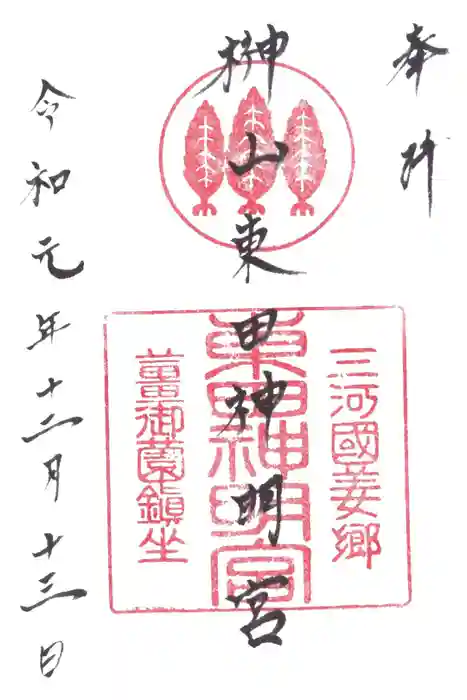 奉拝
榊山東田神明宮
三河國姜郷
東田神明宮
薑御薗鎮坐
令和元年十二月十三日